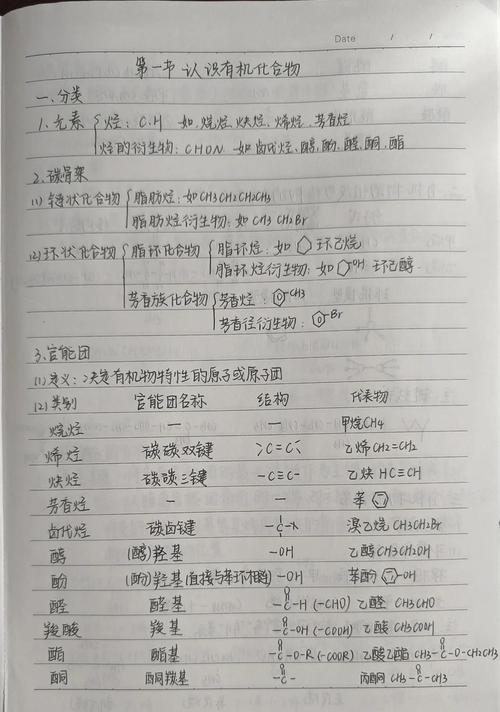 Date / /
第一节 认识有机化合物
一、分类
1.元素 { 烃：C.H 如.烷烃、炔烃、烯烃、芳香烃
烃的衍生物：CHON 如卤代烃、醇、酚、醛、酮、酯
2.碳骨架
(1)链状化合物 { 脂肪烃：如CH3CH2CH2CH3
脂肪烃衍生物：如CH3CH2Br
(2)环状化合物 { 脂环化合物 { 脂环烃：如 环己烷
脂环烃衍生物：如 OH 环己醇
芳香族化合物 { 芳香烃： CH3
芳香烃衍生物： Br
3.官能团
(1)定义：决定有机物特性的原子或原子团
(2)类别 官能团名称 结构 代表物
烷烃 — — 甲烷CH4
烯烃 碳碳双键 >C=C< 乙烯CH2=CH2
炔烃 碳碳三键 -C≡C- 乙炔 HC≡CH
芳香烃 — — 苯
卤代烃 碳卤键 -C-X 溴乙烷 CH3CH2Br
醇 (醇)羟基 -OH 乙醇CH3CH2OH
酚 (酚)羟基(直接与苯环相连) -OH 苯酚 -OH
醛 醛基 -C(=O)-H (-CHO) 乙醛 CH3CHO
羧酸 羧基 -C(=O)-OH (-COOH) 乙酸 CH3COOH
酯 酯基 -C(=O)-O-R (-COOR) 乙酸乙酯 CH3-C(=O)-O-CH2CH3
酮 酮羰基 -C(=O)- 丙酮 CH3-C(=O)-CH3